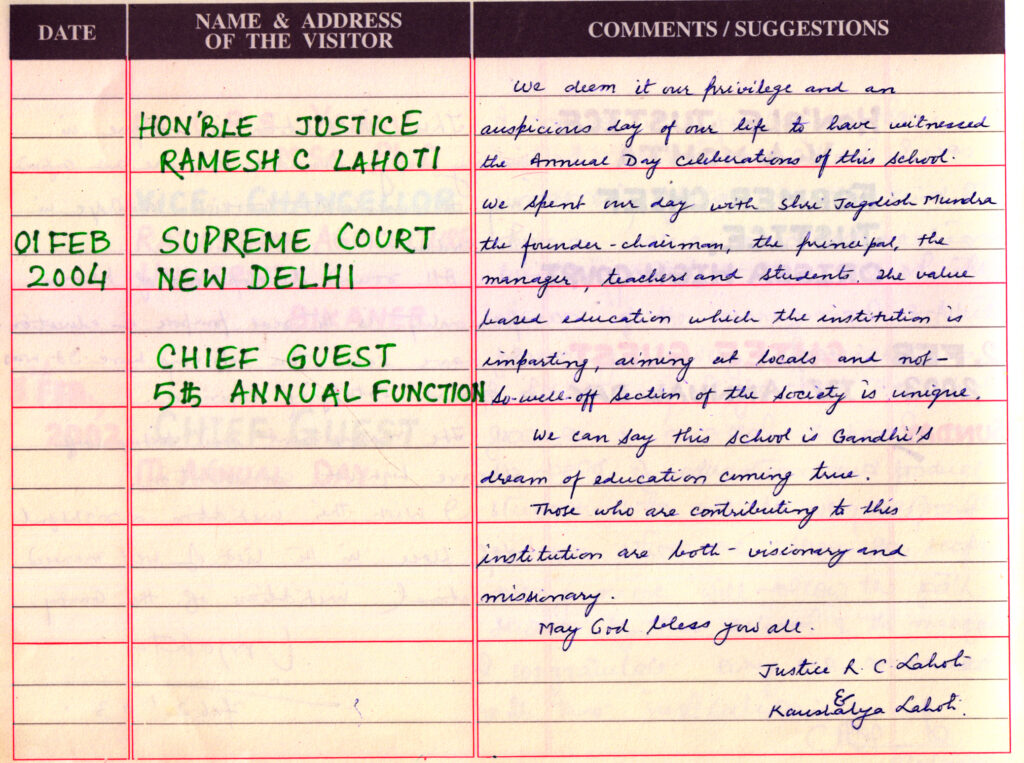 DATE
NAME & ADDRESS
OF THE VISITOR
COMMENTS / SUGGESTIONS
01 FEB
2004
HON'BLE JUSTICE
RAMESH C LAHOTI
SUPREME COURT
NEW DELHI
CHIEF GUEST
5th ANNUAL FUNCTION
We deem it our privilege and an
auspicious day of our life to have witnessed
the Annual Day celeberations of this school.
We spent our day with Shri Jagdish Mundra
the founder-chairman, the principal, the
manager, teachers and students. The value
based education which the institution is
imparting, aiming at locals and not-
so-well-off section of the society is unique.
We can say this school is Gandhi's
dream of education coming true.
Those who are contributing to this
institution are both - visionary and
missionary.
May God bless you all.
Justice R. C. Lahoti
&
Kaushalya Lahoti.